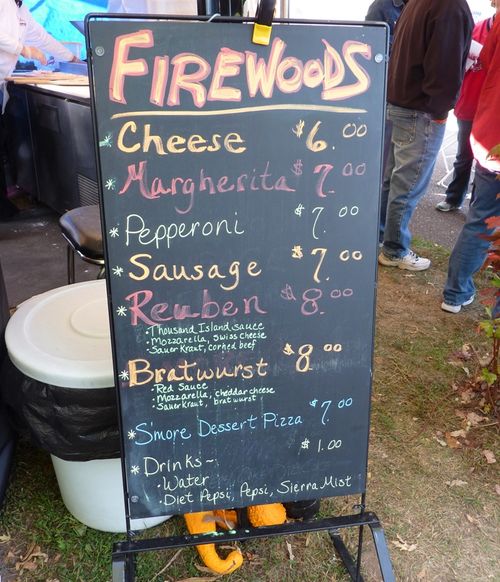 FIREWOODS
* Cheese $6.00
* Margherita $7.00
* Pepperoni $7.00
* Sausage $7.00
* Reuben $8.00
• Thousand Island sauce
• Mozzarella, swiss cheese
• Sauer Kraut, corned beef
* Bratwurst $8.00
• Red Sauce
• Mozzarella, cheddar cheese
• Sauer kraut, bratwurst
* Smore Dessert Pizza $7.00
* Drinks~ $1.00
• Water
• Diet Pepsi, Pepsi, Sierra Mist